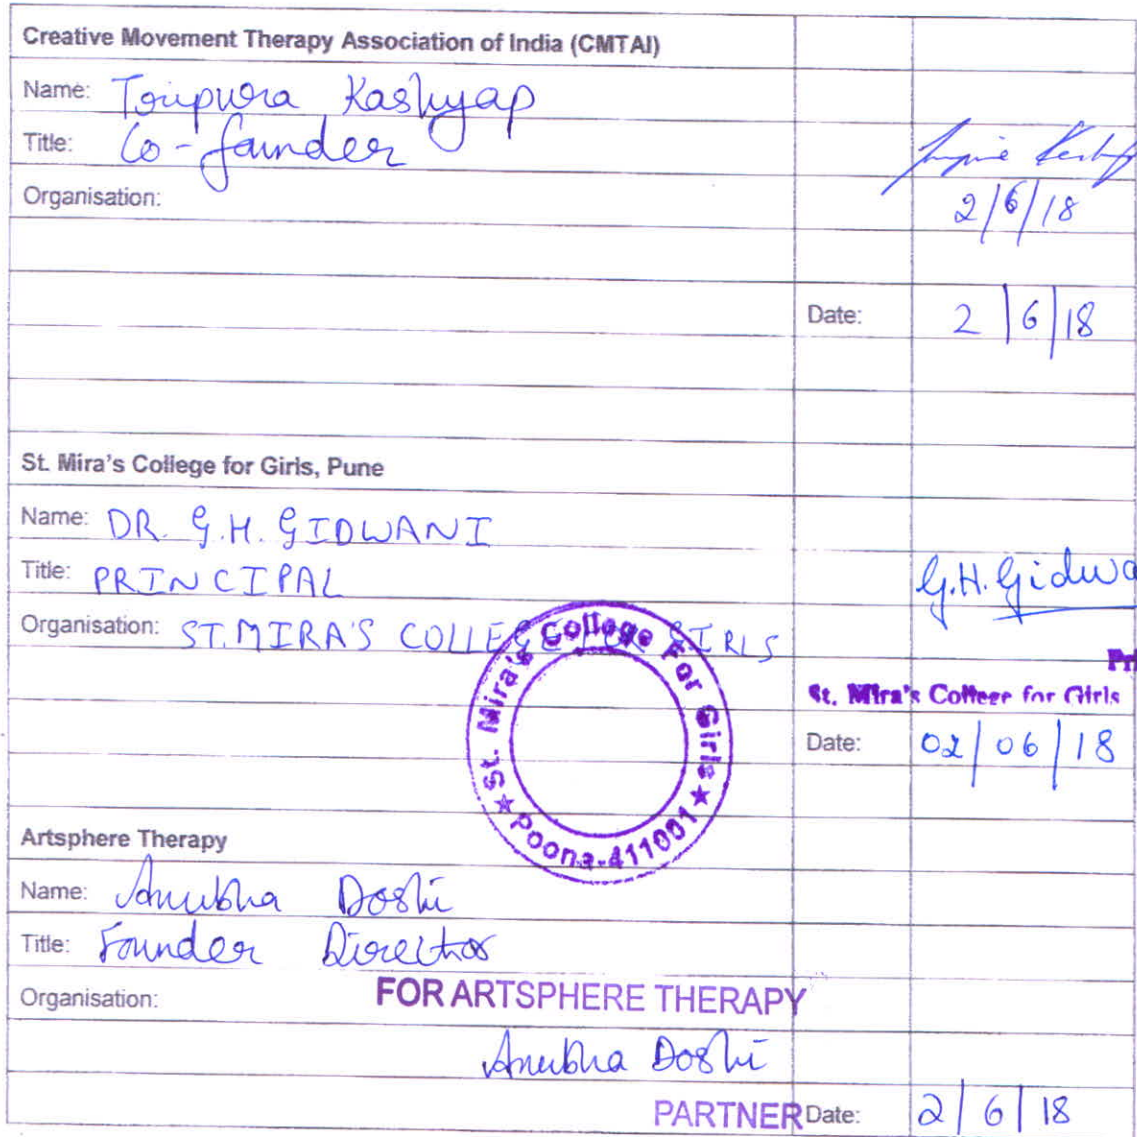 Creative Movement Therapy Association of India (CMTAI)
Name: Tripura Kashyap
Title: Co-founder
Organisation:
2/6/18
Date: 2/6/18
St. Mira's College for Girls, Pune
Name: DR. G.H. GIDWANI
Title: PRINCIPAL
G.H. Gidwa
Organisation: ST. MIRA'S COLLEGE FOR GIRLS
St. Mira's College For Girls
Poona-411001
Pri
St. Mira's College for Girls
Date: 02/06/18
Artsphere Therapy
Name: Anubha Doshi
Title: Founder Director
Organisation: FOR ARTSPHERE THERAPY
Anubha Doshi
PARTNER Date: 2/6/18